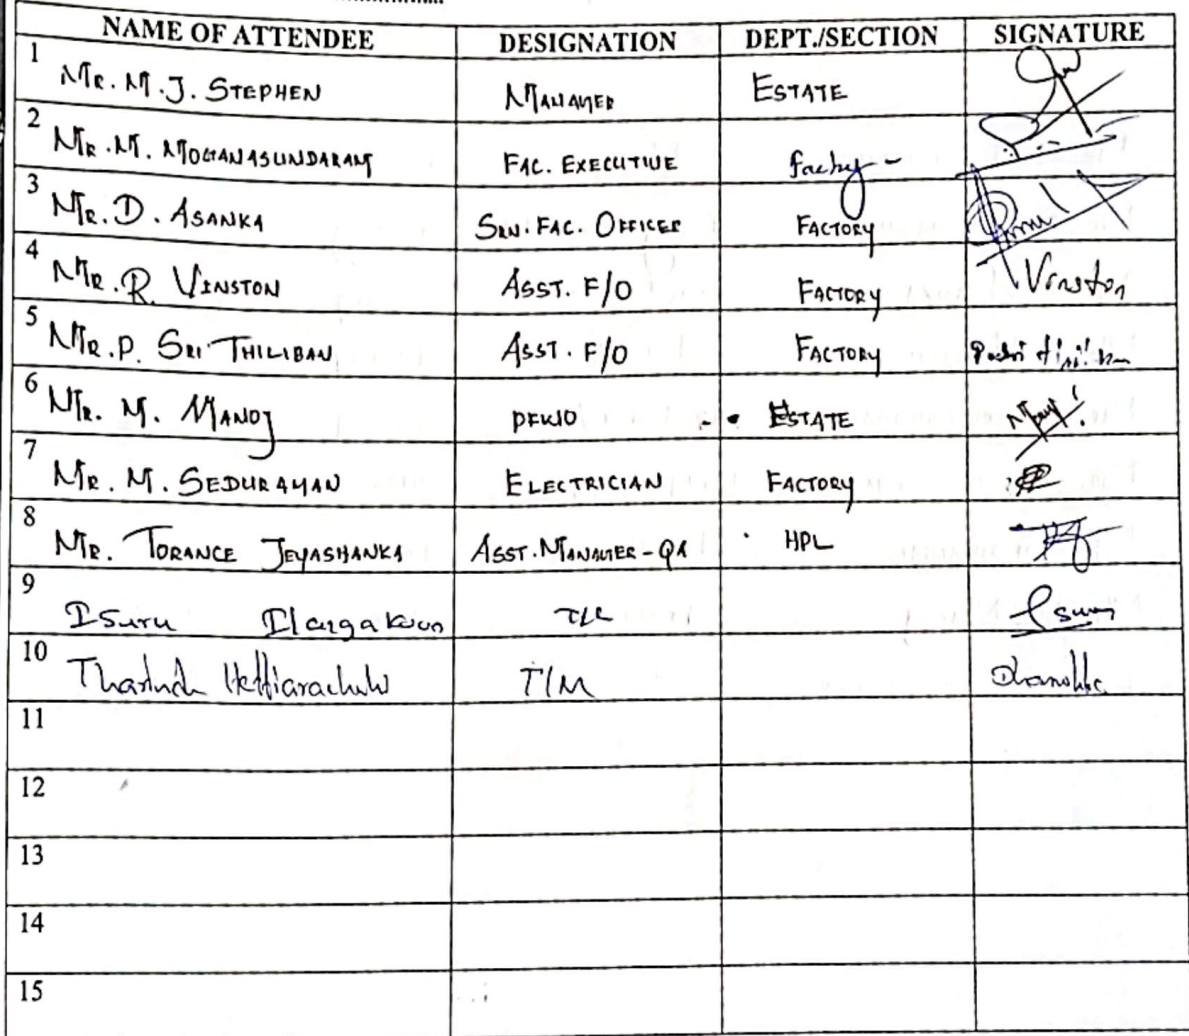 NAME OF ATTENDEE DESIGNATION DEPT./SECTION SIGNATURE
1 Mr. M. J. STEPHEN MANAGER ESTATE
2 Mr. M. MOGANASUNDARAM FAC. EXECUTIVE factory
3 Mr. D. ASANKA SNR. FAC. OFFICER FACTORY
4 Mr. R. VINSTON ASST. F/O FACTORY Vinston
5 Mr. P. SRI THILIBAN ASST. F/O FACTORY
6 Mr. M. MANOJ PEWO ESTATE
7 Mr. M. SEDURAYAN ELECTRICIAN FACTORY
8 Mr. TORANCE JEYASHANKA ASST. MANAGER - QA HPL
9 Isuru Ilangakoon Isuru
10 Hettiarachchi T/M
11
12
13
14
15